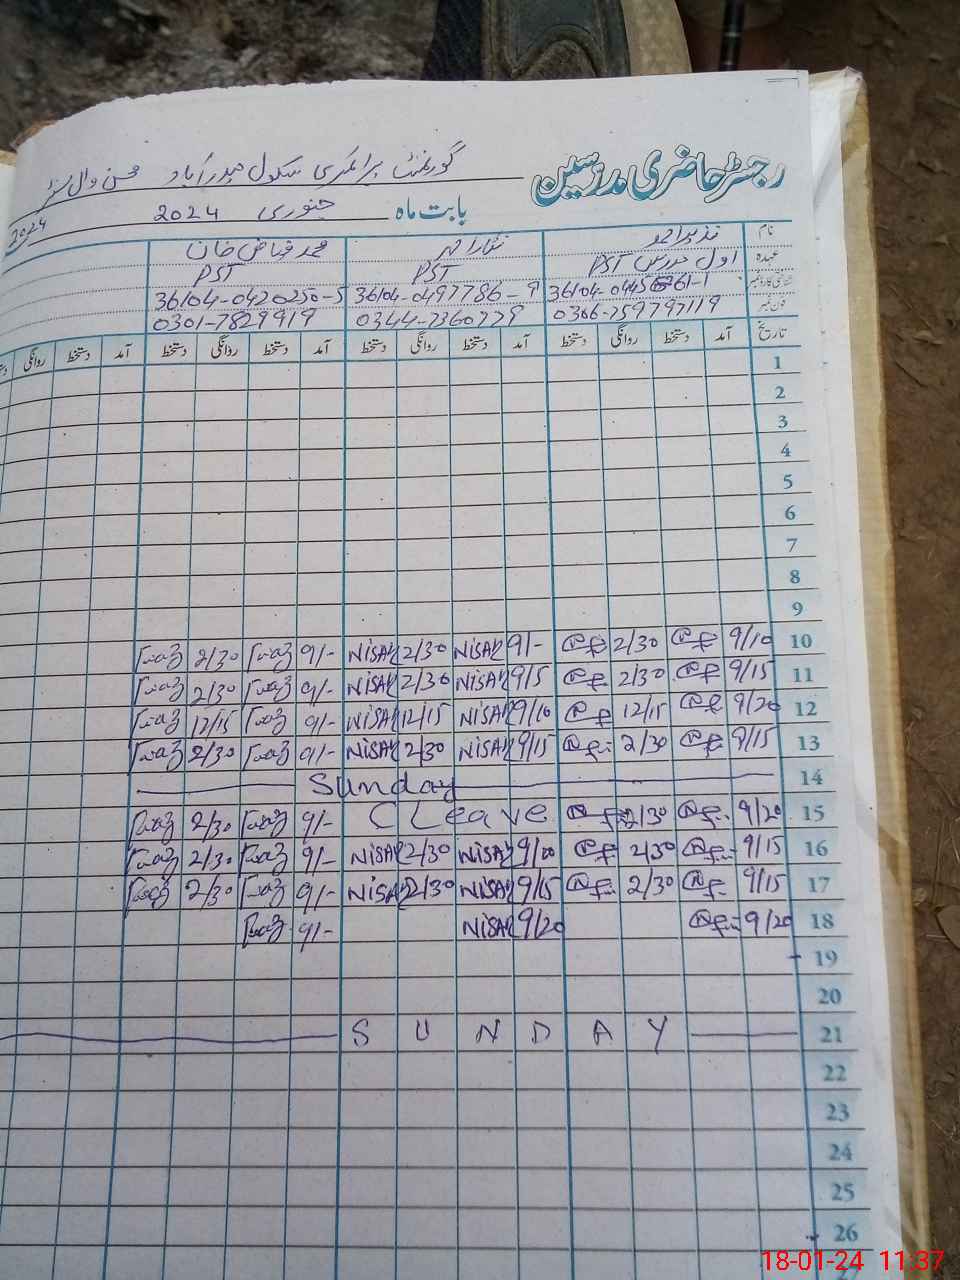 رجسٹر حاضری مدرسین گورنمنٹ پرائمری سکول حیدرآباد محسن وال سنٹر
بابت ماہ جنوری 2024 2024
نام نذیر احمد نثار احمد محمد فیاض خان
عہدہ اول مدرس PST PST PST
شناختی کارڈ نمبر 36104-0497786-9 36104-0420250-5
فون نمبر 0306-759797119 0344-7360779 0301-7829919
تاریخ آمد دستخط روانگی دستخط آمد دستخط روانگی دستخط آمد دستخط روانگی دستخط آمد دستخط روانگی
1
2
3
4
5
6
7
8
9
10 9/10 2/30 9/- NISAR 2/30 NISAR 9/- 2/30
11 9/15 2/30 9/5 NISAR 2/30 NISAR 9/- 2/30
12 9/20 12/15 9/10 NISAR 12/15 NISAR 9/- 12/15
13 9/15 2/30 9/15 NISAR 2/30 NISAR 9/- 2/30
14 Sunday
15 9/20 2/30 C Leave 9/- 2/30
16 9/15 2/30 NISAR 2/30 NISAR 9/- 2/30
17 9/15 2/30 9/15 NISAR 2/30 NISAR 9/- 2/30
18 9/20 9/20 NISAR 9/-
19
20
21 SUNDAY
22
23
24
25
26
27
18-01-24 11:37